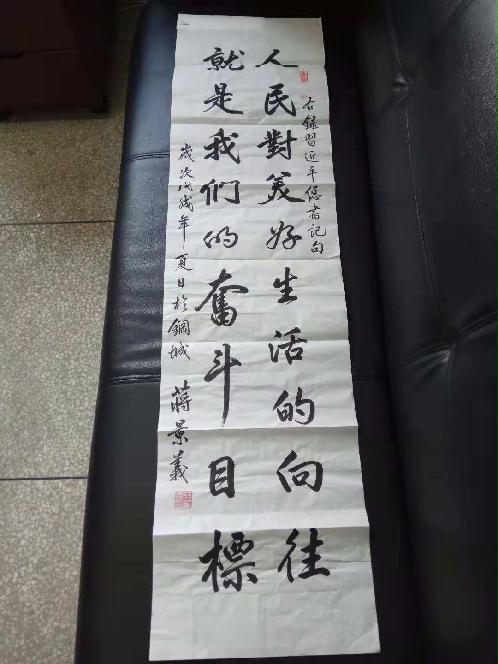 人民對美好生活的向往
就是我们的奮斗目標
右録習近平总书记句
歲次戊戌年夏日於銅城 蔣景義